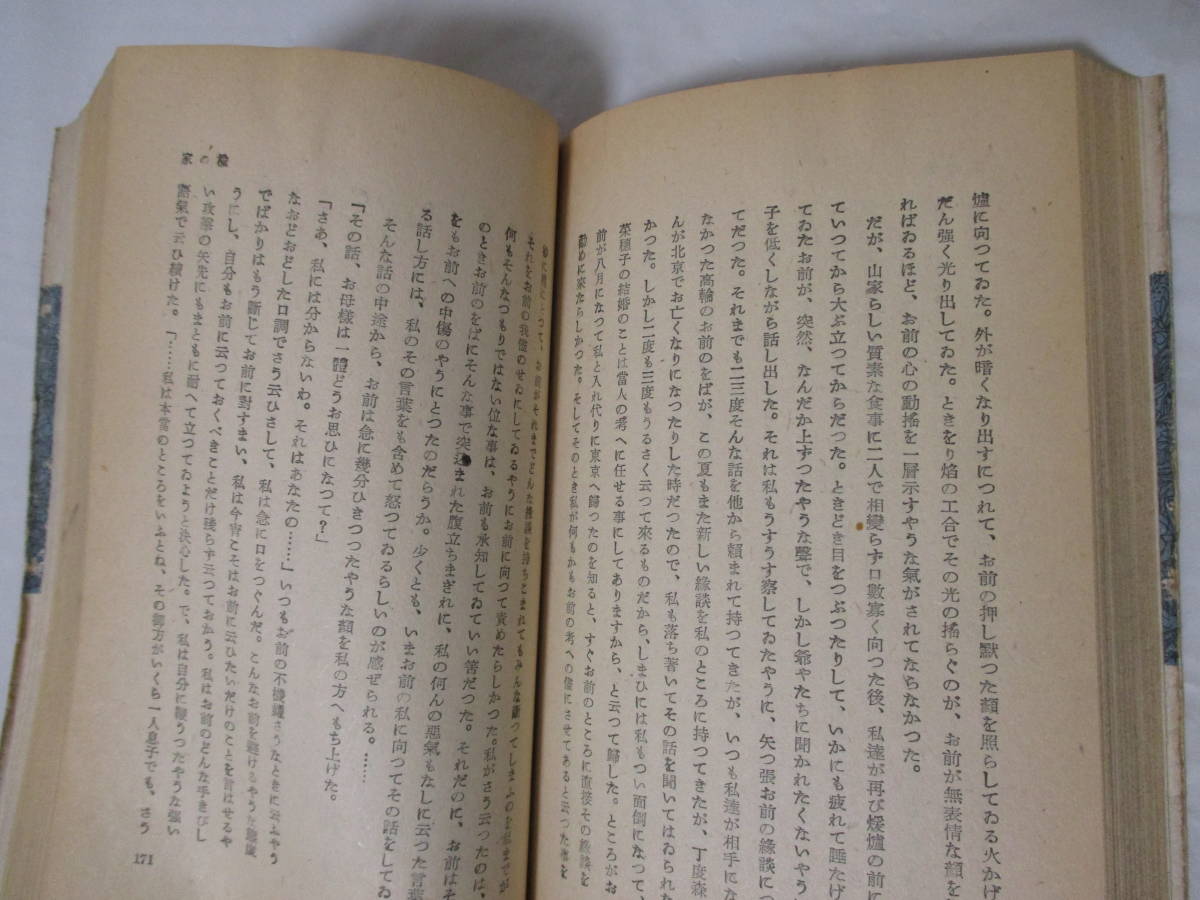 爐に向つてゐた。外が暗くなり出すにつれて、お前の押し默つた顏を照らしてゐる火かげ
だん强く光り出してゐた。ときをり焰の工合でその光の搖らぐのが、お前が無表情な顏を
ればゐるほど、お前の心の動搖を一層示すやうな氣がされてならなかつた。
だが、山家らしい質素な食事に二人で相變らず口數寡く向つた後、私達が再び煖爐の前に
ていつてから大ぶ立つてからだつた。ときどき目をつぶつたりして、いかにも疲れて睡たげ
てゐたお前が、突然、なんだか上ずつたやうな聲で、しかし爺やたちに聞かれたくないやう
子を低くしながら話し出した。それは私もうすうす察してゐたやうに、矢つ張お前の緣談につ
てだつた。それまでも二三度そんな話を他から賴まれて持つてきたが、いつも私達が相手にな
なかつた高輪のお前のをばが、この夏もまた新しい緣談を私のところに持つてきたが、丁度森
んが北京でお亡くなりになつたりした時だつたので、私も落ち著いてその話を聞いてはゐられな
かつた。しかし二度も三度もうるさく云つて來るものだから、しまひには私もつい面倒になつて、
菜穗子の結婚のことは當人の考へに任せる事にしてありますから、と云つて歸した。ところがお
前が八月になつて私と入れ代りに東京へ歸つたのを知ると、すぐお前のところに直接その緣談を
勸めに來たらしかつた。そしてそのとき私が何もかもお前の考への儘にさせてあると云つた事を
お前がそれまでどんな緣談を持ちこまれてもみんな斷つてしまふのを私までが
それをお前の我儘のせゐにしてゐるやうにお前に向つて責めたらしかつた。私がさう云つたのは、
何もそんなつもりではない位な事は、お前も承知してゐていい筈だつた。それだのに、お前はそ
のときお前のをばにそんな事で突込まれた腹立ちまぎれに、私の何んの惡氣もなしに云つた言葉
をもお前への中傷のやうにとつたのだらうか。少くとも、いまお前の私に向つてその話をしてゐ
る話し方には、私のその言葉をも含めて怒つてゐるらしいのが感ぜられる。……
そんな話の中途から、お前は急に幾分ひきつつたやうな顏を私の方へもち上げた。
「その話、お母樣は一體どうお思ひになつて?」
「さあ、私には分からないわ。それはあなたの……」いつもお前の不機嫌さうなときに云ふやう
なおどおどした口調でさう云ひさして、私は急に口をつぐんだ。こんなお前を避けるやうな態度
でばかりはもう斷じてお前に對すまい、私は今宵こそはお前に云ひたいだけのことを言はせるや
うにし、自分もお前に云つておくべきことだけ殘らず云つておかう。私はお前のどんな手きびし
い攻擊の矢先にもまともに耐へて立つてゐようと決心した。で、私は自分に鞭うつたやうな强い
語氣で云ひ續けた。「……私は本當のところをいふとね、その御方がいくら一人息子でも、さう
楡の家
171